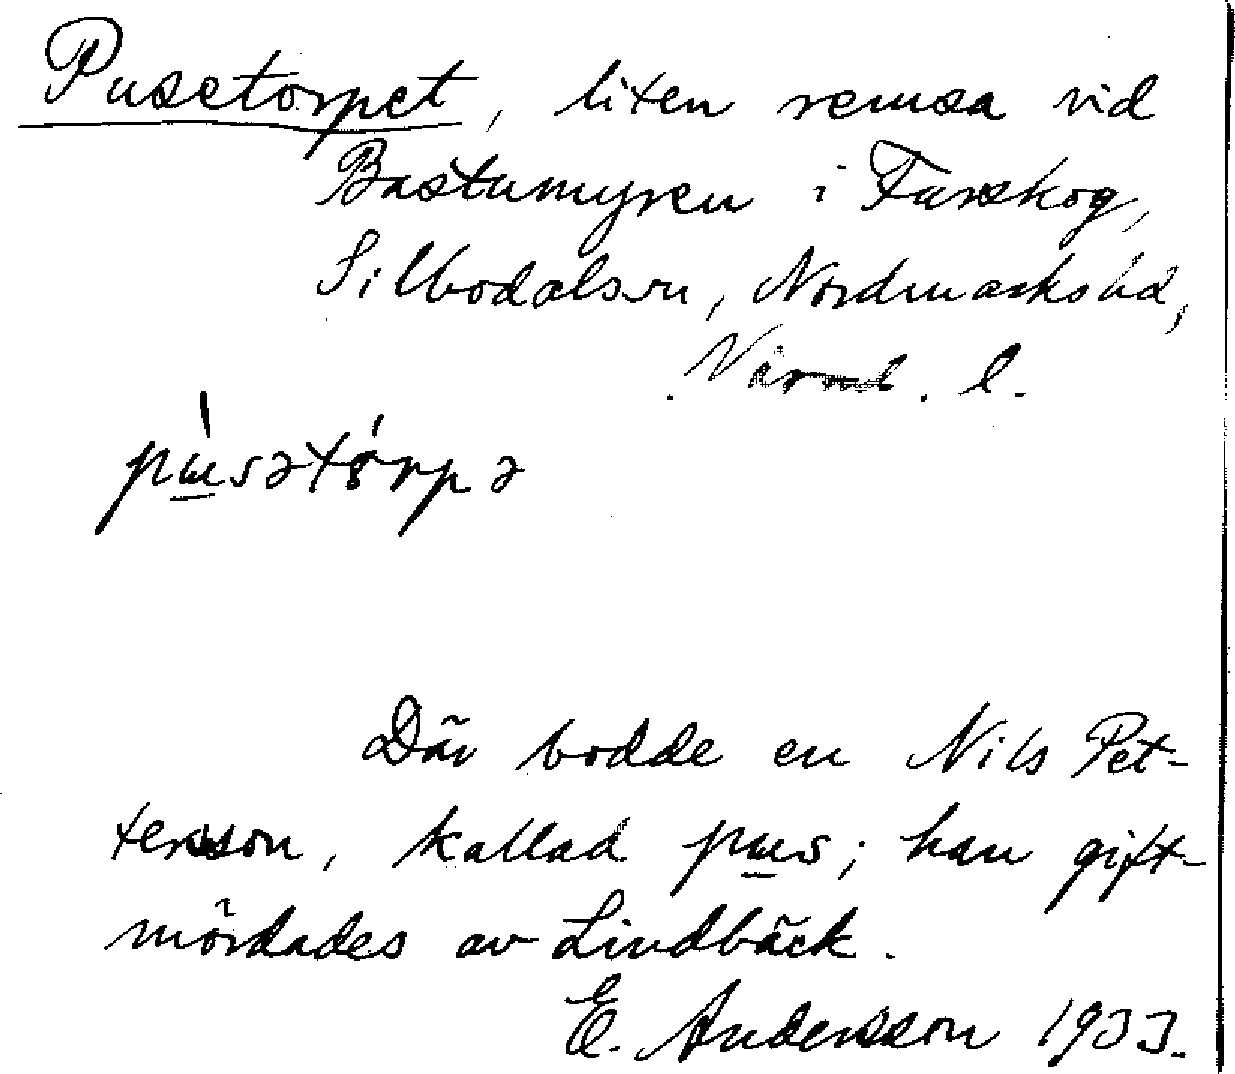 Pusetorpet, liten remsa vid
Bastumyren i Farskog,
Silbodalsn, Nordmarkshd,
Värml. l.
pɯ̀sətórpə
Där bodde en Nils Pet-
tersson, kallad pɯs; han gift-
mördades av Lindbäck.
E. Andersson 1933.